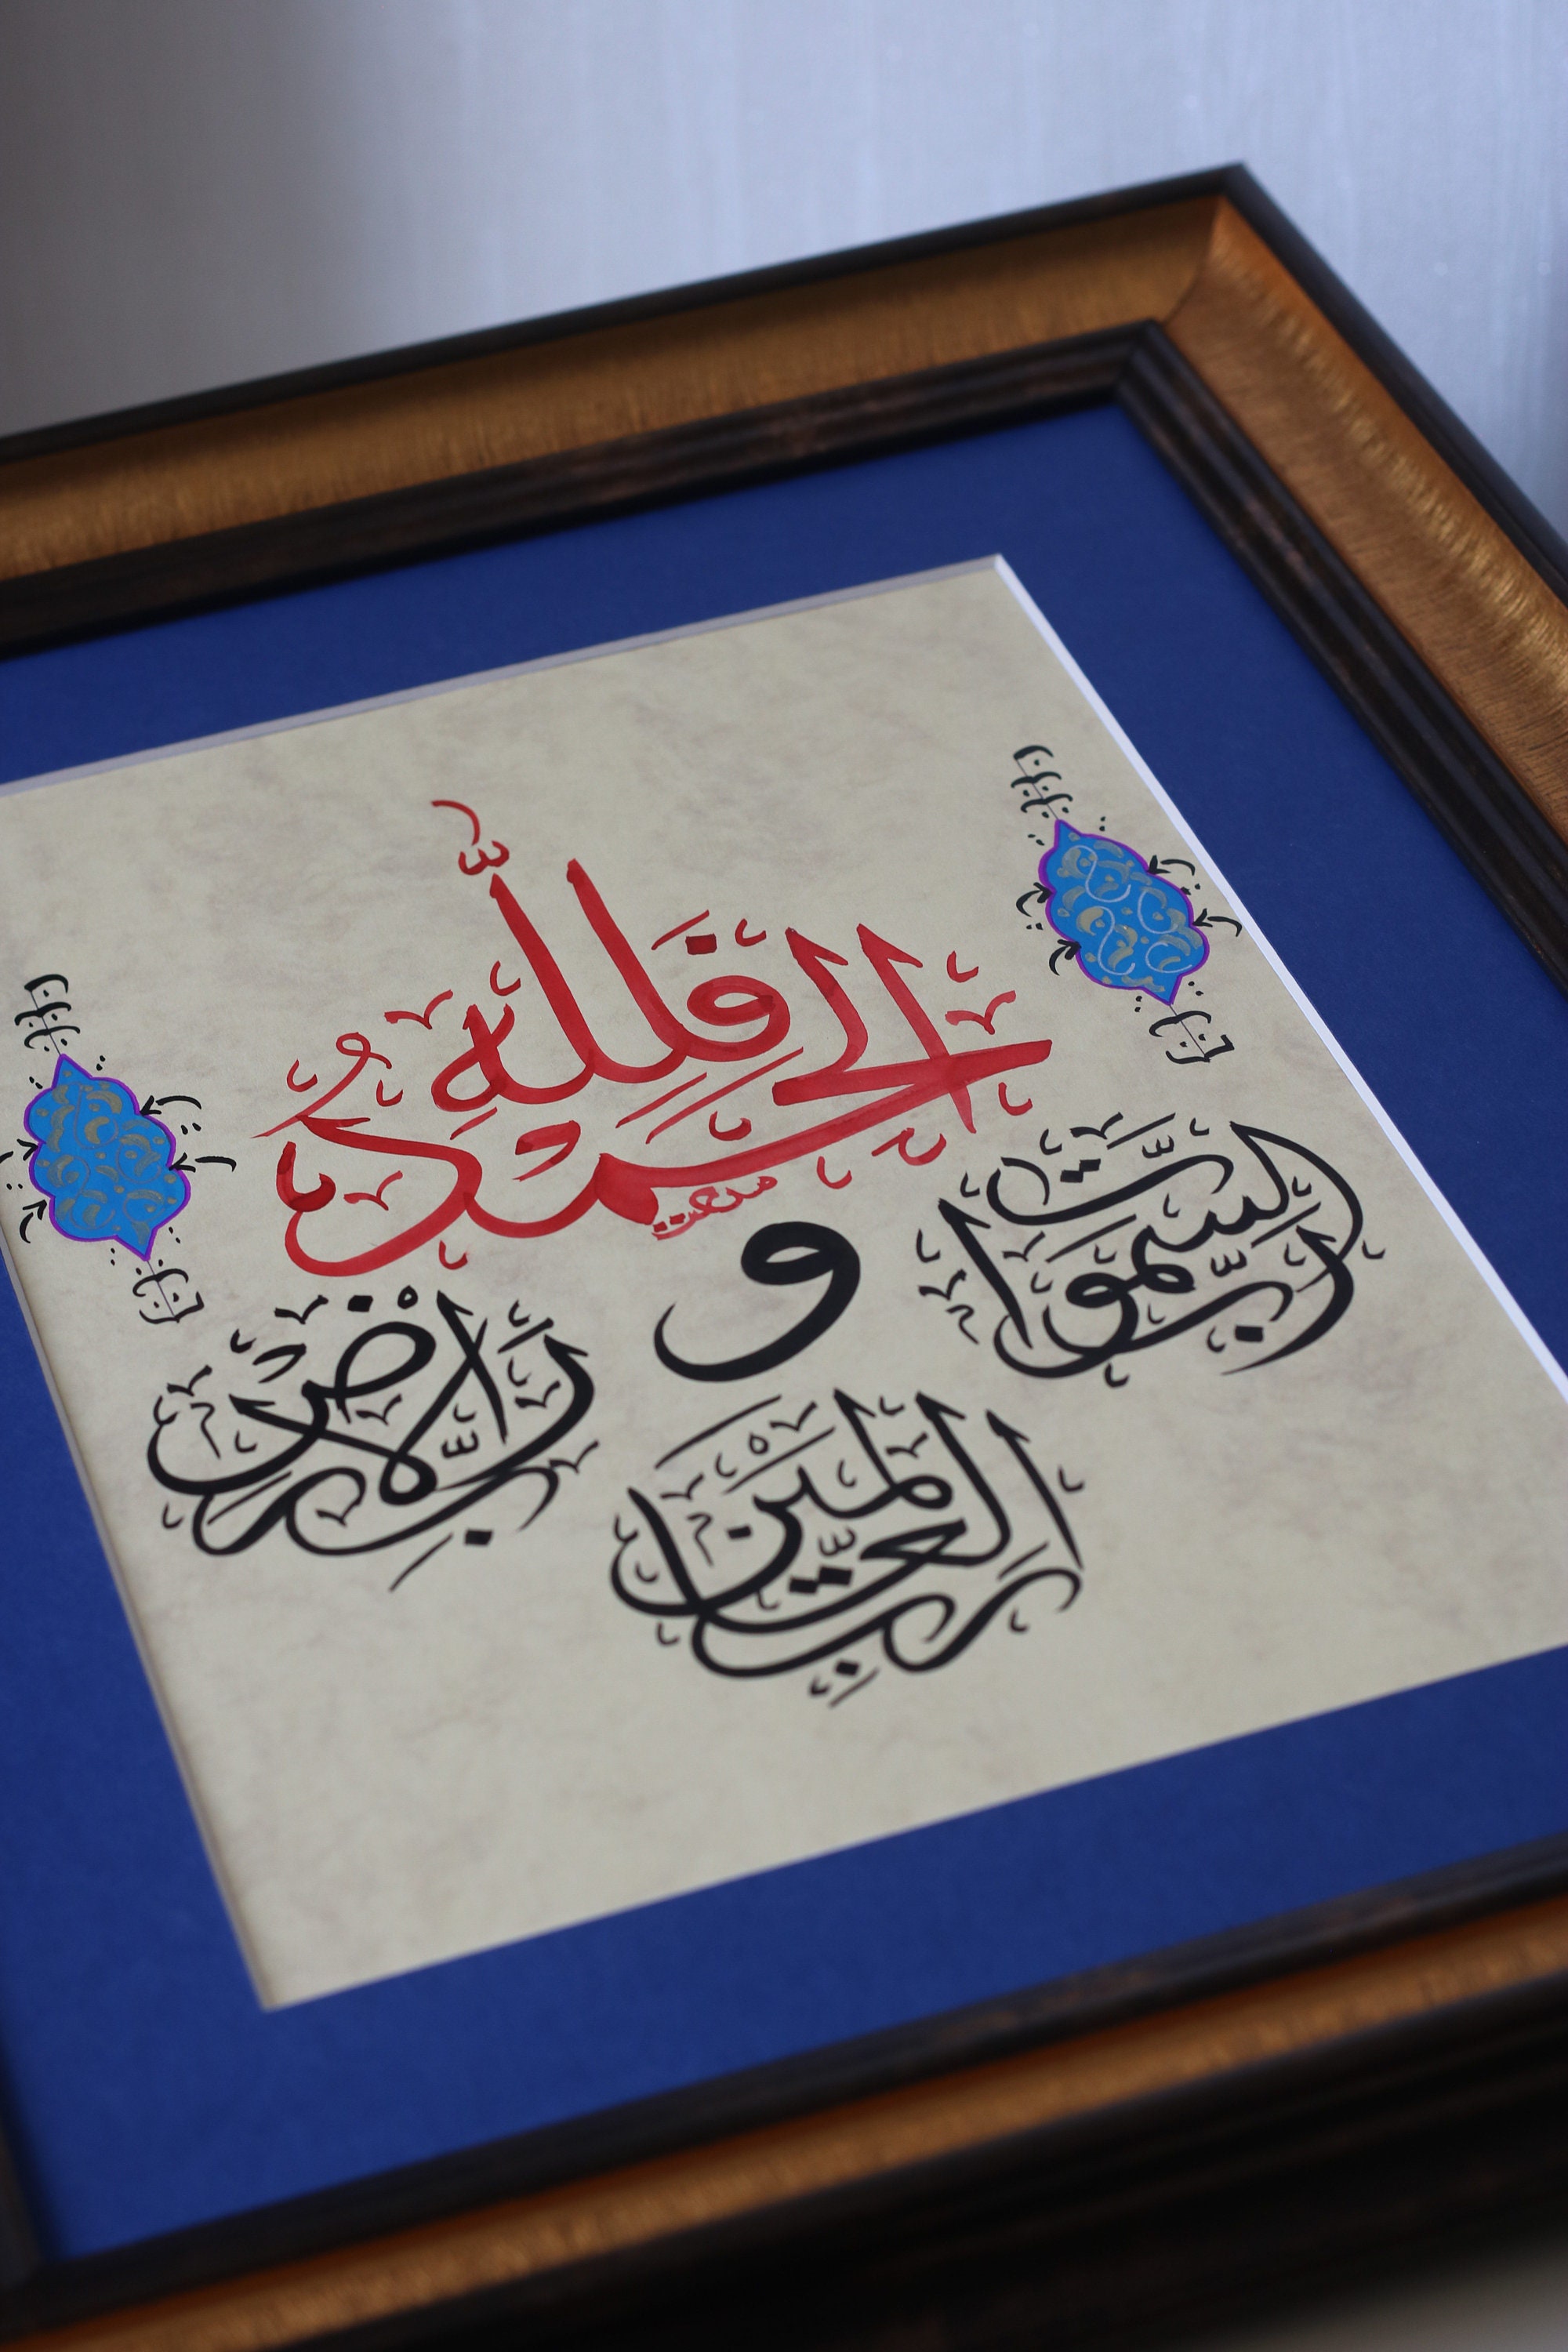 فَلِلّٰهِ الْحَمْدُ
رَبِّ السَّمٰوَاتِ
وَ
رَبِّ الْاَرْضِ
رَبِّ الْعَالَمِينَ